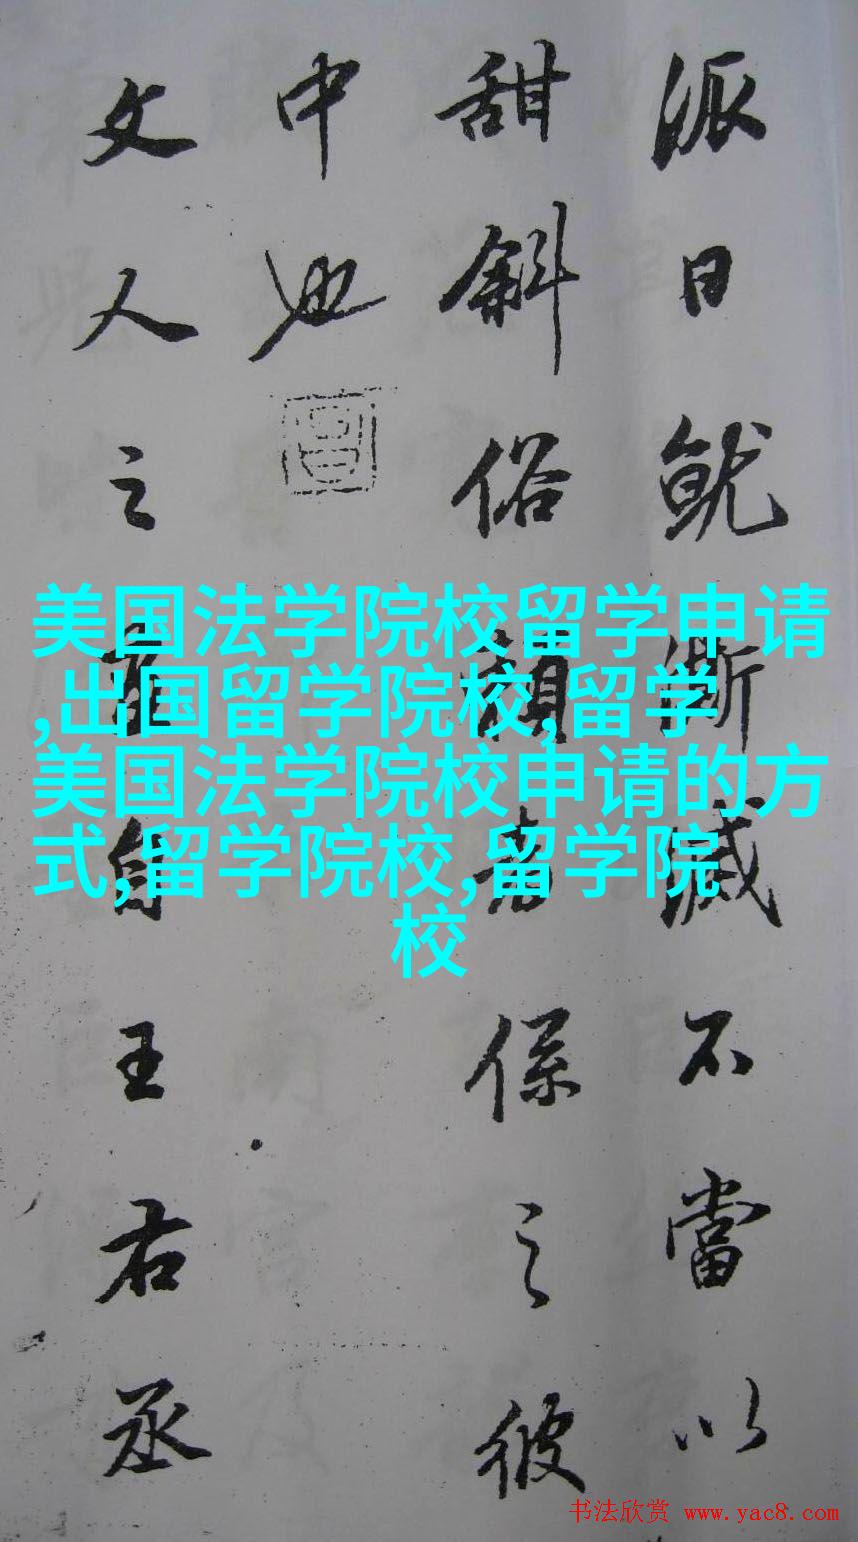 派日就澌滅不當以
甜斜俗賴者係之彼
中也
文人之畫自王右丞
美国法学院校留学申请
,出国留学院校,留学
美国法学院校申请的方
式,留学院校,留学院
校
书法欣赏 www.yac8.com